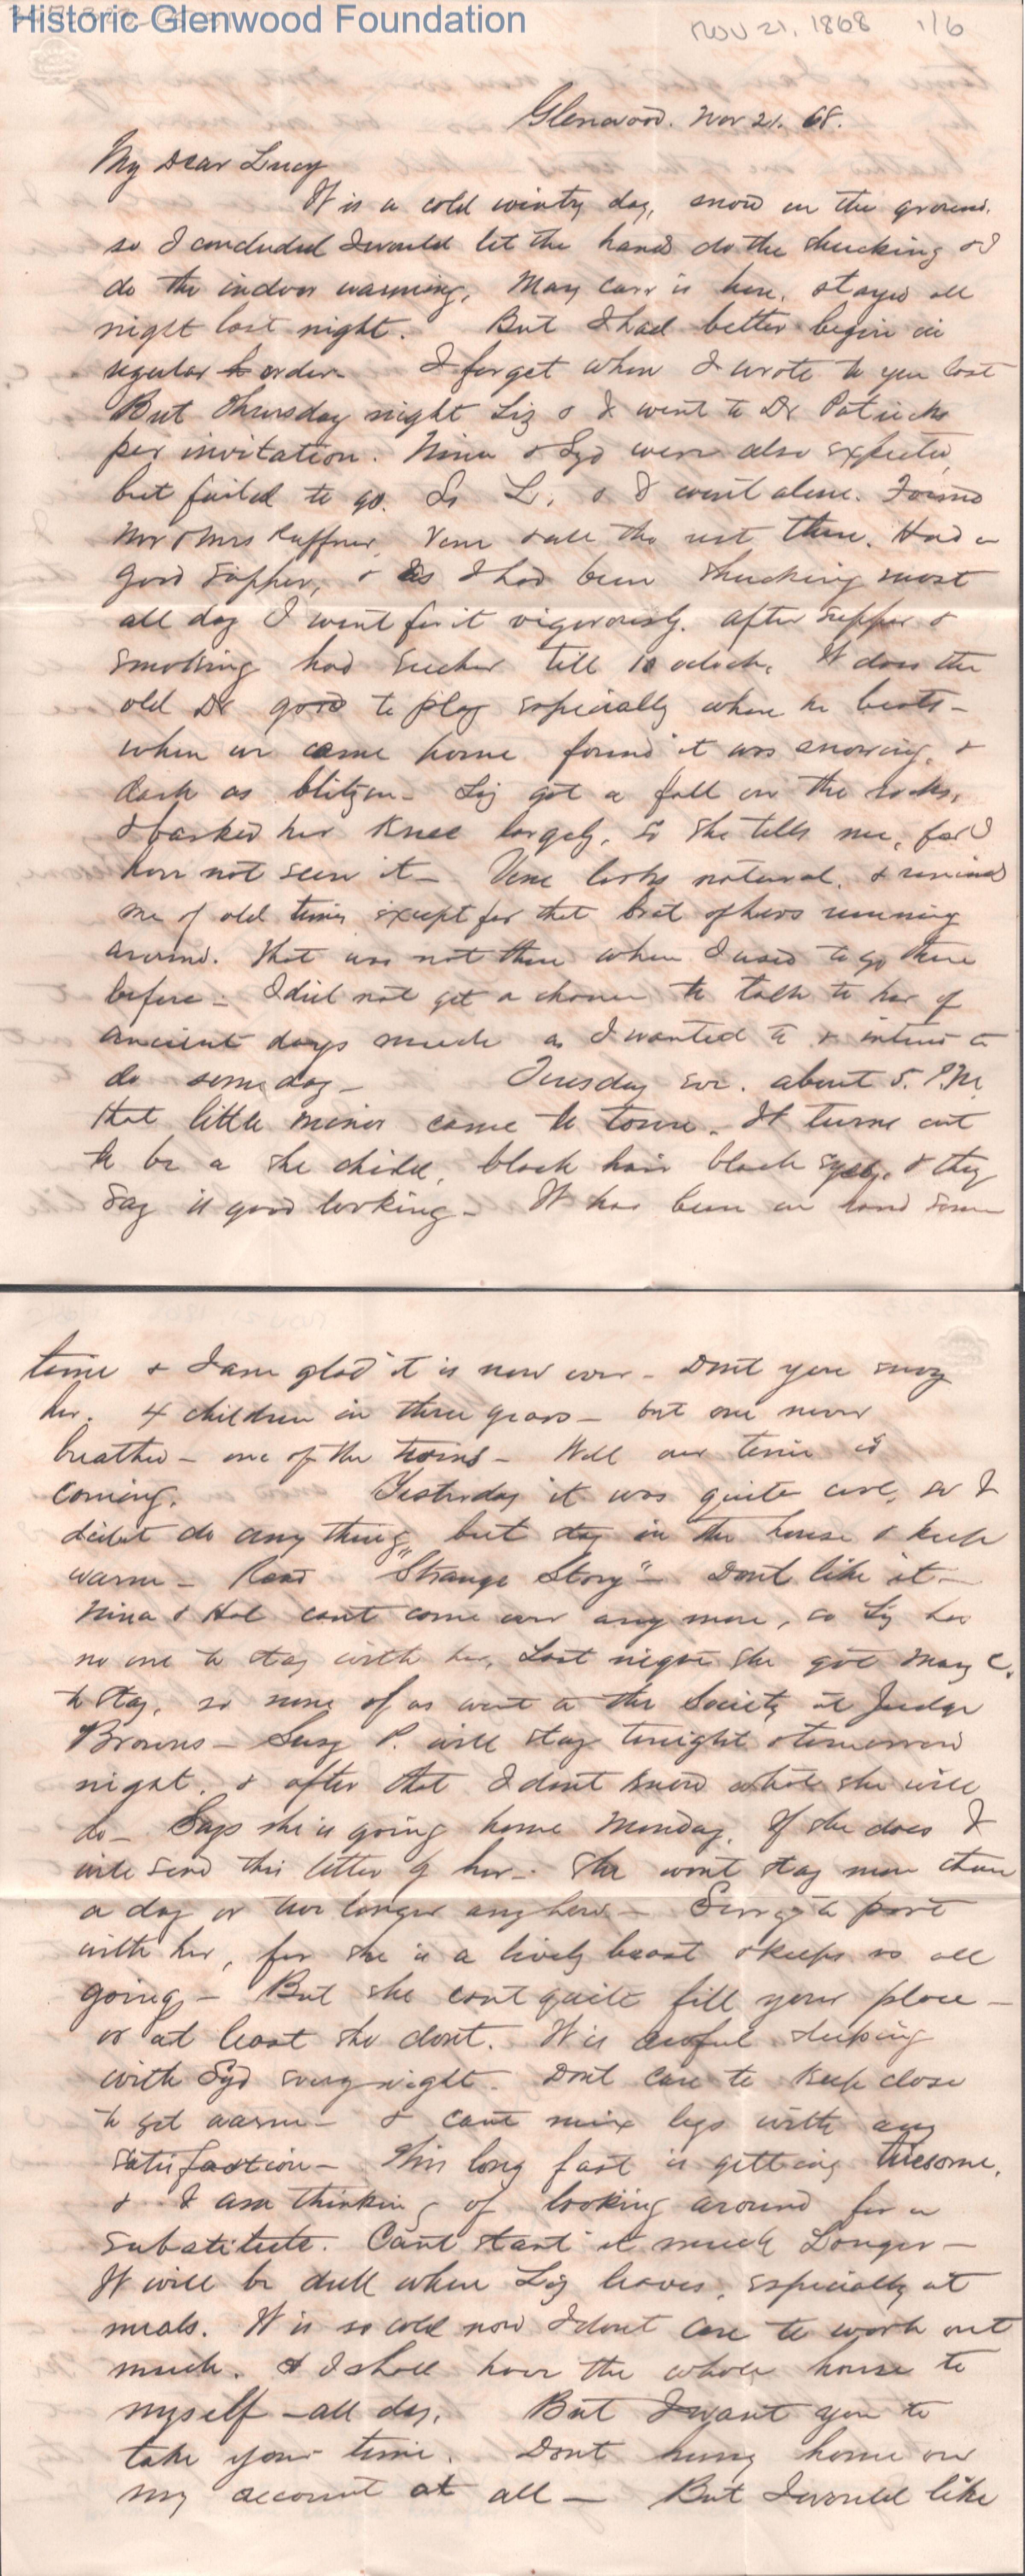 Historic Glenwood Foundation
Nov 21, 1868 1/6
Glenwood. Nov 21. 68.
My Dear Lucy
It is a cold wintry day, snow on the ground.
so I concluded I would let the hands do the shucking & I
do the indoor warming. Mary Carr is here. stayed all
night last night. But I had better begin in
regular order. I forget when I wrote to you last
But Thursday night Liz & I went to Dr Patricks
per invitation. Nina & Syd were also expected,
but failed to go. So L. & I went alone. Found
Mr & Mrs Ruffner, Vene & all the rest there. Had a
good supper, & as I had been shucking most
all day I went for it vigorously. After supper &
smoking had eucher till 10 oclock. It does the
old Dr good to play especially when he beats -
when we came home found it was snowing, &
dark as blitzen - Liz got a fall on the rocks,
& barked her knee largely. So she tells me, for I
have not seen it - Vene looks natural. & reminds
me of old times except for that brat of hers running
around. That was not there when I used to go there
before - I did not get a chance to talk to her of
ancient days much as I wanted to & intend to
do someday - Tuesday eve. about 5. P.M.
that little minor came to town. It turns out
to be a she child, black hair black eyes. & they
say is good looking - It has been on hand some
time & I am glad it is now over - Dont you envy
her. 4 children in three years - but one never
breathed - one of the twins - Well our time is
coming. Yesterday it was quite cool, so I
didnt do any thing but stay in the house & keep
warm - Read "Strange Story" - Dont like it -
Nina & Hal cant come over any more, so Liz has
no one to stay with her. Last night she got Mary C.
to stay, so none of us went to the Society at Judge
Browns - Susy P. will stay tonight & tomorrow
night. & after that I dont know what she will
do - Says she is going home Monday. If she does I
will send this letter by her - She wont stay more than
a day or two longer anyhow - Sorry to part
with her, for she is a lively beast & keeps us all
going - But she cant quite fill your place -
or at least she dont. It is awful sleeping
with Syd every night - Dont care to keep close
to get warm - & cant mix legs with any
satisfaction - This long fast is getting tiresome,
& I am thinking of looking around for a
substitute. Cant stand it much Longer -
It will be dull when Liz leaves, especially at
meals. It is so cold now I dont care to work out
much. & I shall have the whole house to
myself - all day. But I want you to
take your time. Dont hurry home on
my account at all - But I would like